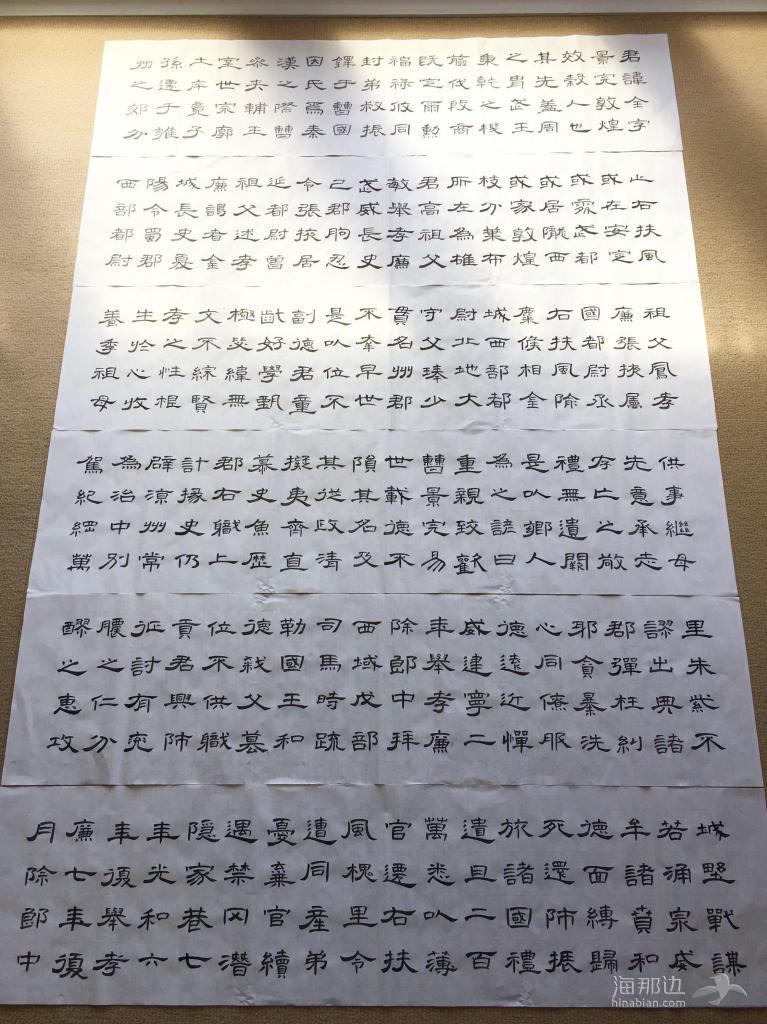 君諱全字
景完敦煌
效穀人也
其先蓋周
之胄武王
秉乾之機
翦伐殷商
既定爾勳
福祿攸同
封弟叔振
鐸于曹國
因氏焉秦
漢之際曹
參夾輔王
室世宗廓
土斥竟子
孫遷于雍
州之郊分
止右扶風
或在安定
或處武都
或居隴西
或家敦煌
枝分葉布
所在為雄
君高祖父
敏舉孝廉
武威長史
巴郡朐忍
令張掖居
延都尉曾
祖父述孝
廉謁者金
城長史夏
陽令蜀郡
西部都尉
祖父鳳孝
廉張掖屬
國都尉丞
右扶風隃
麋侯相金
城西部都
尉北地大
守父琫少
貫名州郡
不幸早世
是以位不
副德君童
齔好學甄
極毖緯無
文不綜賢
孝之性根
生於心收
養季祖母
供事繼母
先意承志
存亡之敬
禮無遺闕
是以鄉人
為之諺曰
重親致歡
曹景完易
世載德不
隕其名及
其從政清
擬夷齊直
慕史魚歷
郡右職上
計掾史仍
辟涼州常
為治中別
駕紀綱萬
里朱紫不
謬出典諸
郡彈枉糾
邪貪暴洗
心同僚服
德遠近憚
威建寧二
年舉孝廉
除郎中拜
西域戊部
司馬時疏
勒國王和
德弒父篡
位不供職
貢君興師
征討有兗
膿之仁分
醪之惠攻
城野戰謀
若涌泉威
牟諸賁和
德面縛歸
死還師振
旅諸國禮
遺且二百
萬悉以薄
官遷右扶
風槐里令
遭同產弟
憂棄官續
遇禁网潛
隱家巷七
年光和六
年復舉孝
廉七年復
月除郎中
海那边
hinabian.com